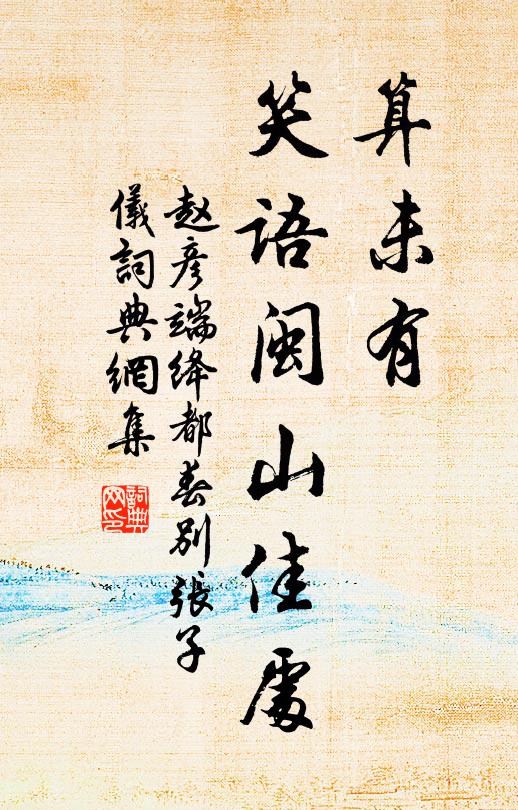 算未有
笑语闽山佳處
赵彦端绛都春别張子
儀詞典網集
詞典
网印